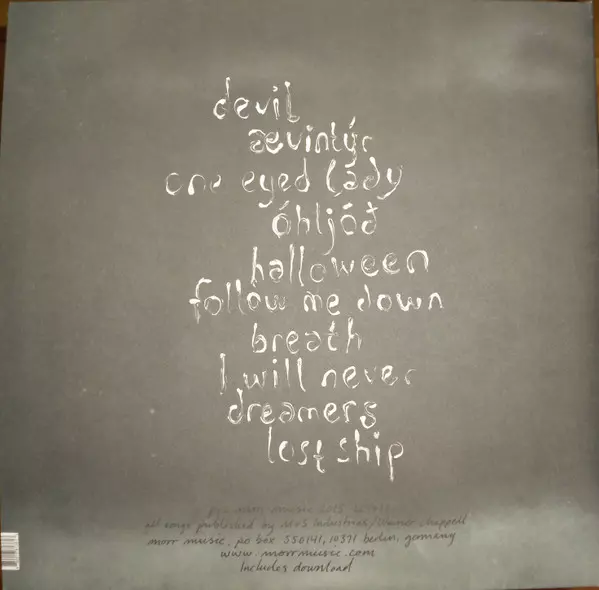 devil
ævintýr
one eyed lády
óhljóð
halloween
follow me down
breath
I will never
dreamers
lost ship
morr music 2015
all songs published by MVS Industries/Warner Chappell
morr music, po box 550141, 10371 berlin, germany
www.morrmusic.com
Includes download